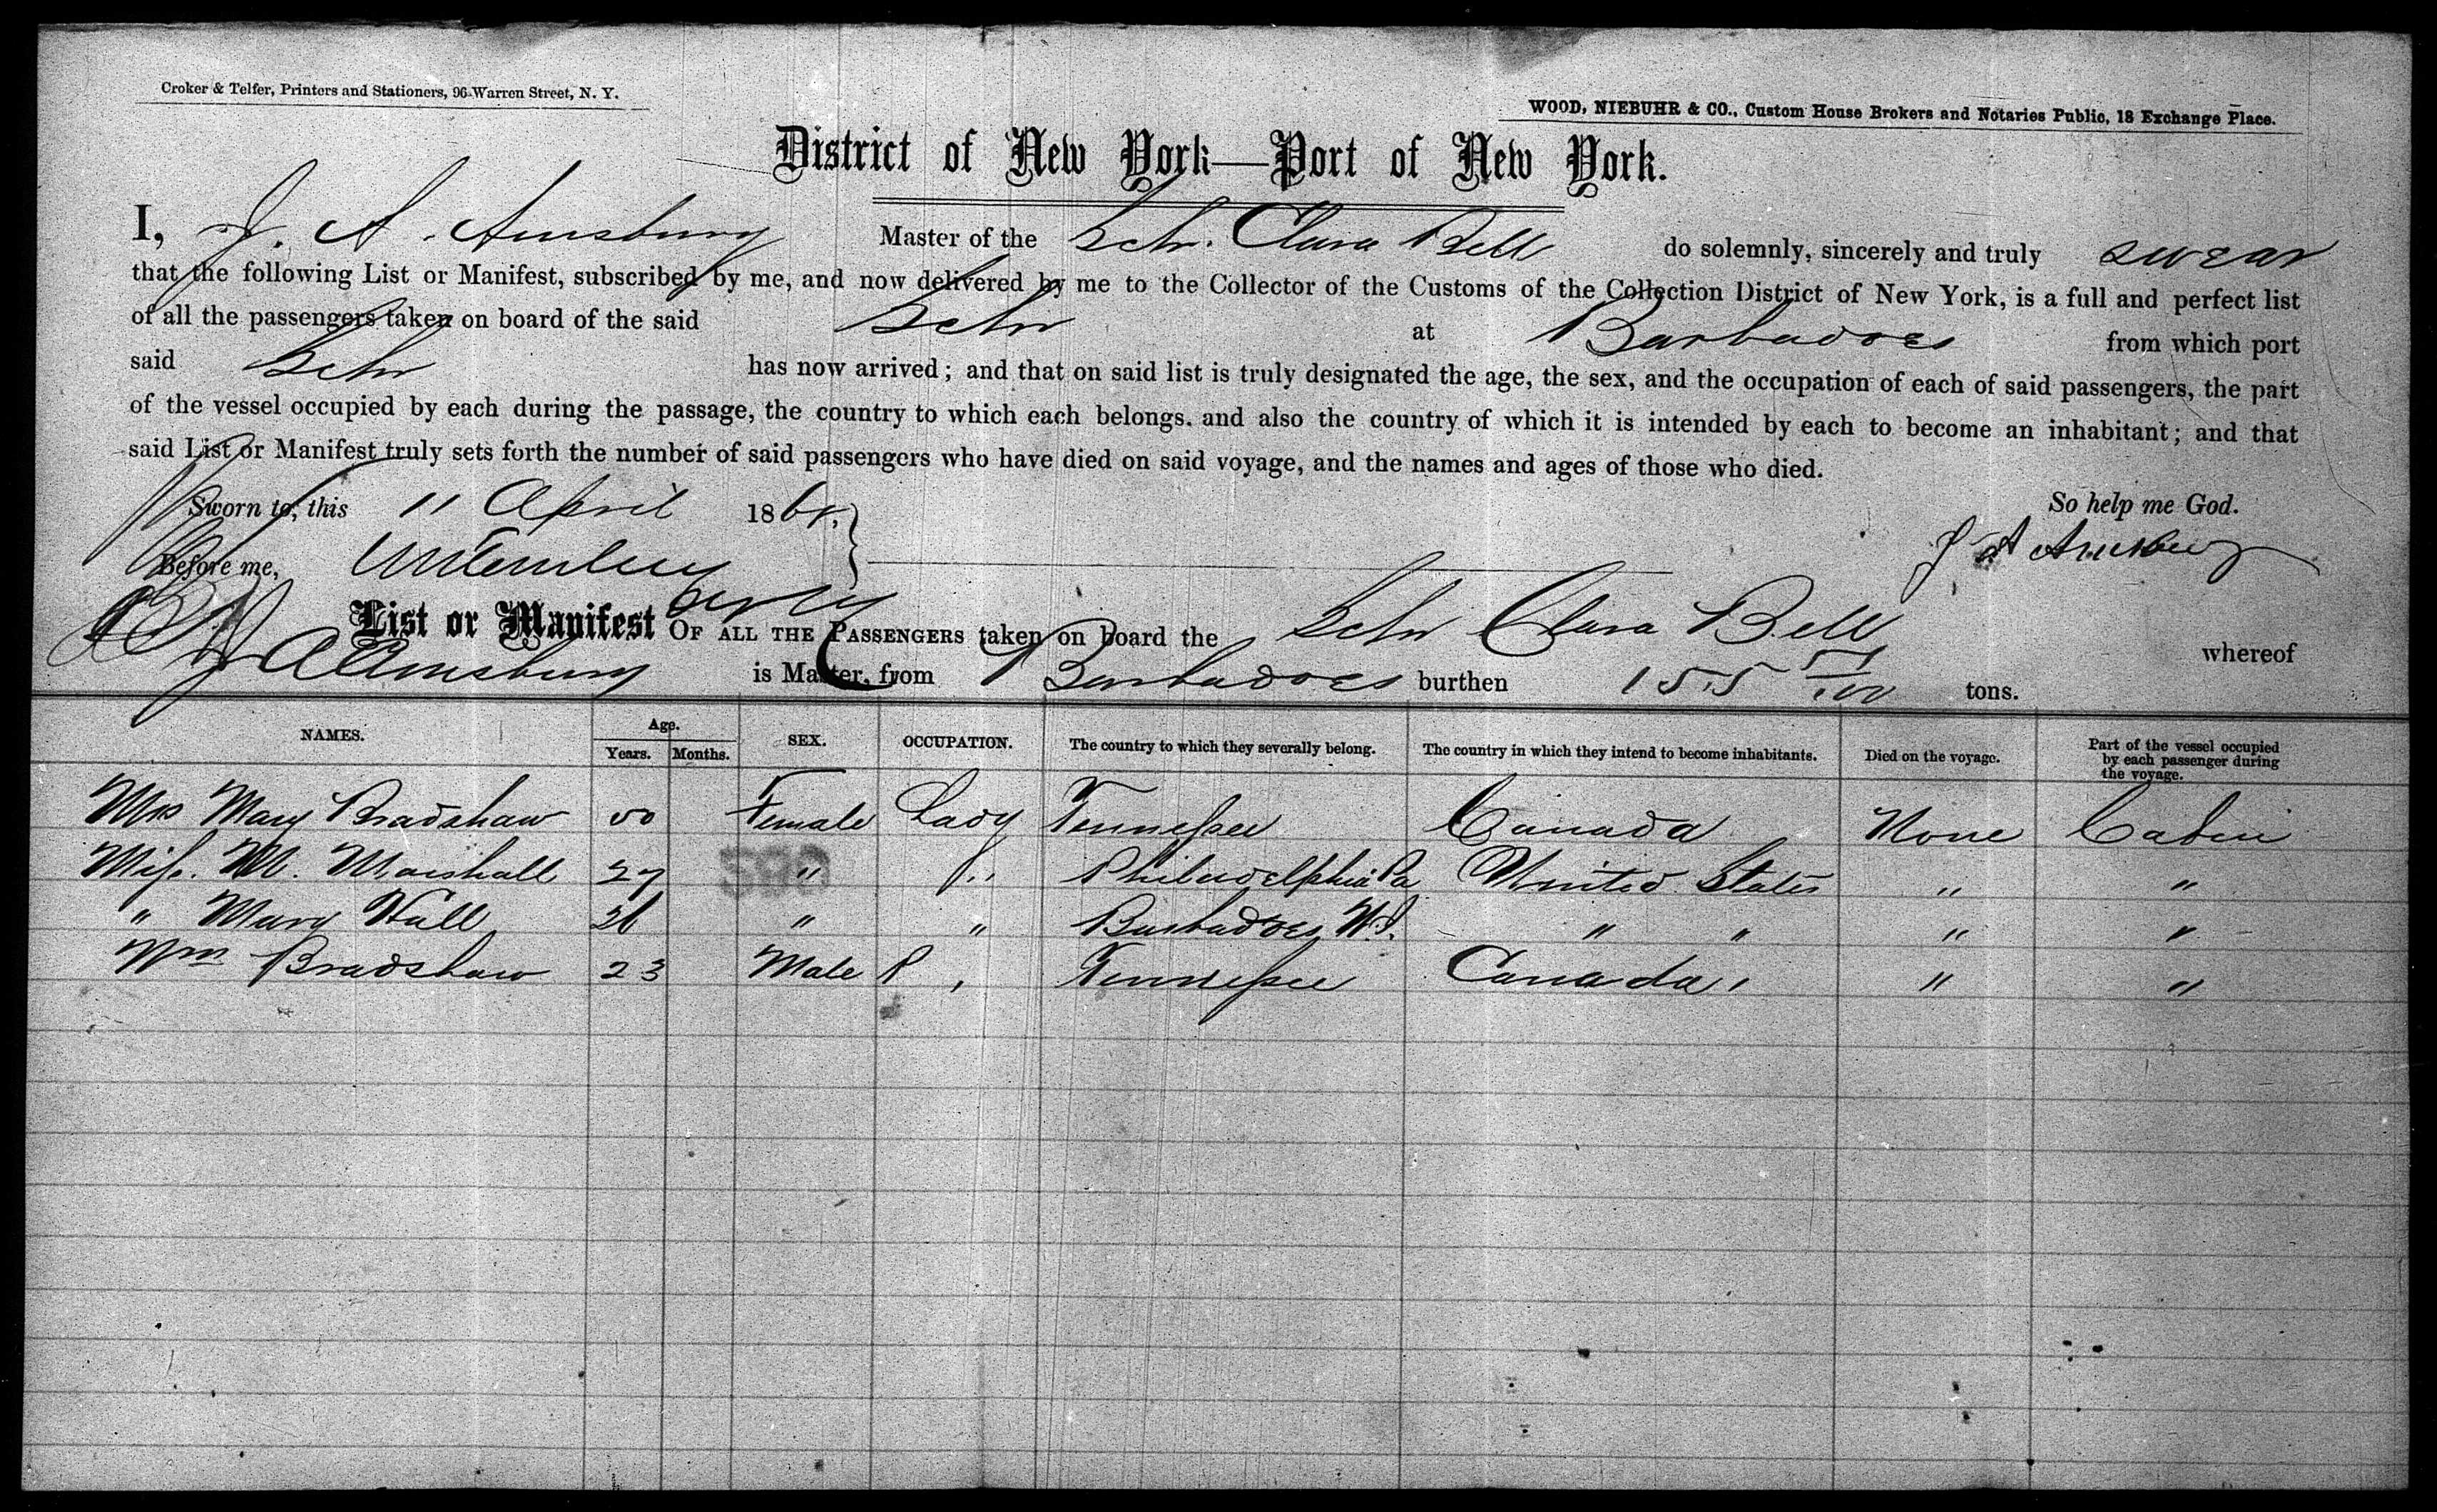 Croker & Telfer, Printers and Stationers, 96 Warren Street, N. Y.
WOOD, NIEBUHR & CO., Custom House Brokers and Notaries Public, 18 Exchange Place.
District of New York—Port of New York.
I, J. A. Amsbury Master of the Schr. Clara Bell do solemnly, sincerely and truly swear
that the following List or Manifest, subscribed by me, and now delivered by me to the Collector of the Customs of the Collection District of New York, is a full and perfect list
of all the passengers taken on board of the said Schr at Barbadoes from which port
said Schr has now arrived; and that on said list is truly designated the age, the sex, and the occupation of each of said passengers, the part
of the vessel occupied by each during the passage, the country to which each belongs. and also the country of which it is intended by each to become an inhabitant; and that
said List or Manifest truly sets forth the number of said passengers who have died on said voyage, and the names and ages of those who died.
Sworn to, this 11 April 186 So help me God.
Before me, J A Amsbury
List or Manifest OF ALL THE PASSENGERS taken on board the Schr Clara Bell whereof
J A Amsbury is Master, from Barbadoes burthen 155 /100 tons.
NAMES. Age. Years. Months. SEX. OCCUPATION. The country to which they severally belong. The country in which they intend to become inhabitants. Died on the voyage. Part of the vessel occupied by each passenger during the voyage.
Mrs Mary Bradshaw 50 Female Lady Tennessee Canada None Cabin
Miss. M. Marshall 27 " " Philadelphia Pa United States " "
" Mary Hall 26 " " Barbadoes W.I. " " " "
Wm Bradshaw 23 Male Tennessee Canada " "